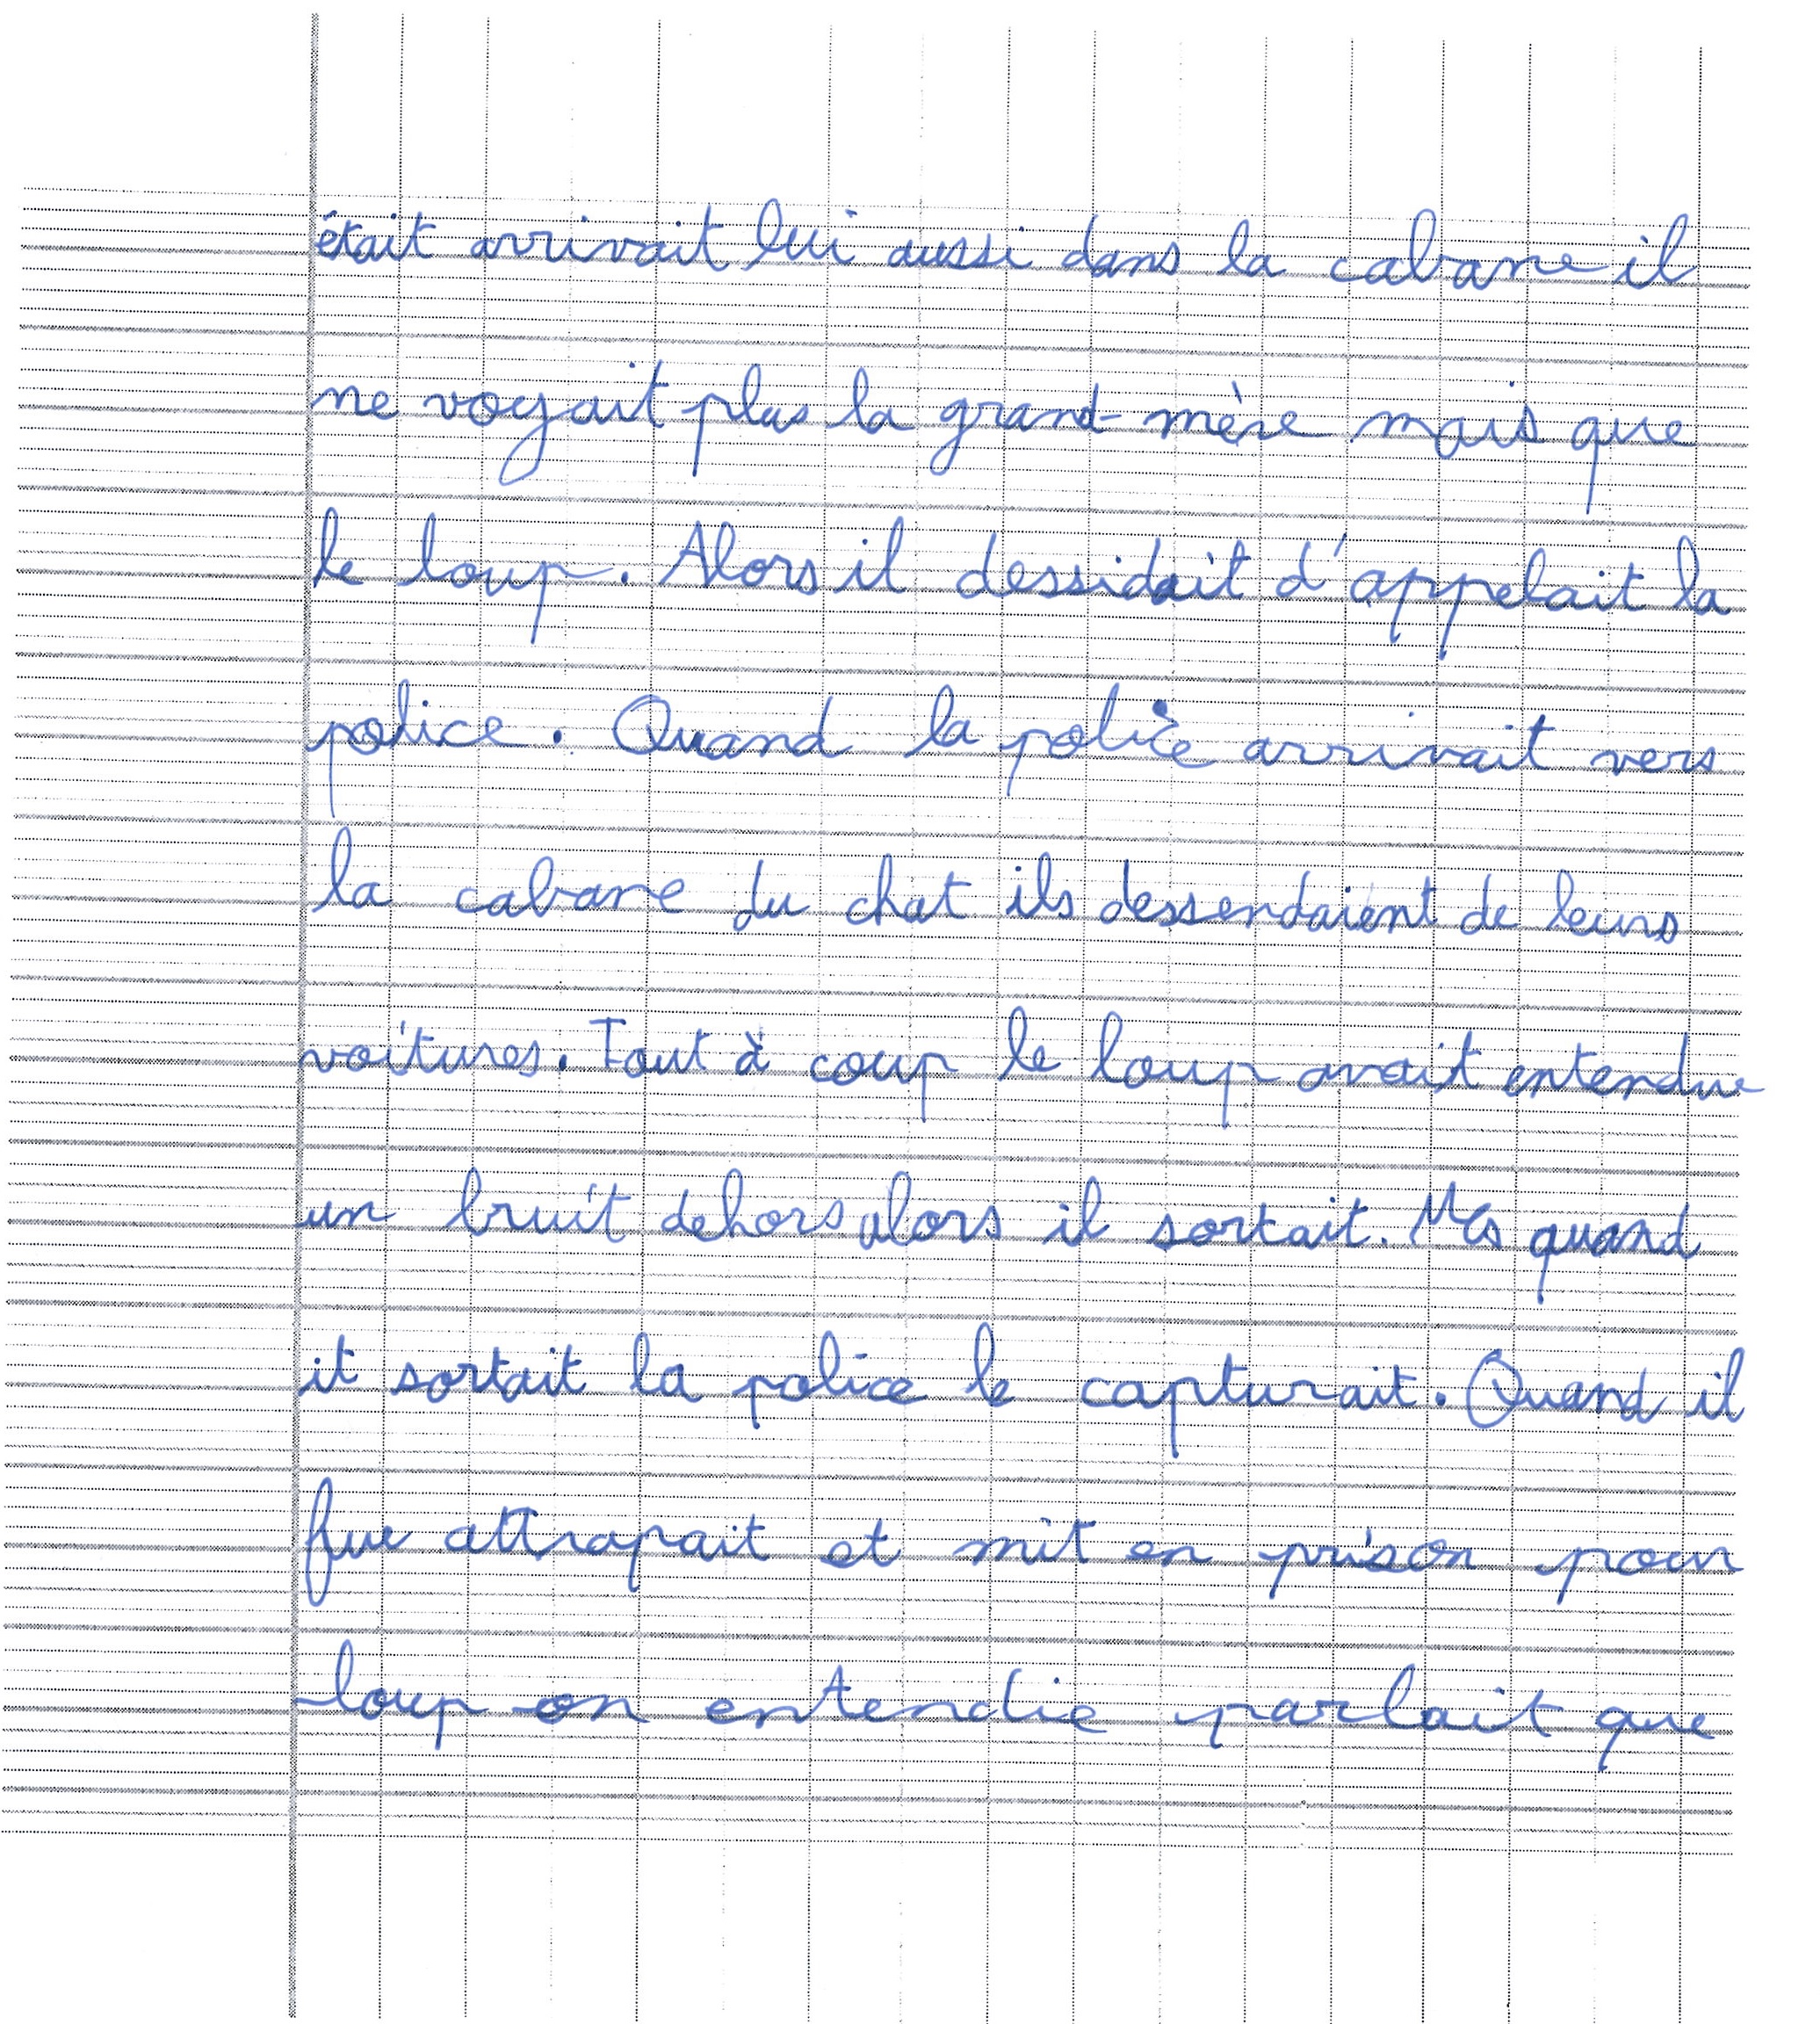 était arrivait lui aussi dans la cabane il
ne voyait plus la grand-mère mais que
le loup. Alors il dessidait d'appelait la
police. Quand la police arrivait vers
la cabane du chat ils dessendaient de leurs
voitures. Tout à coup le loup avait entendue
un bruit dehors alors il sortait. Mes quand
it sortait la police le capturait. Quand il
fue attrapait et mit en prison pour
loup on entendie parlait que